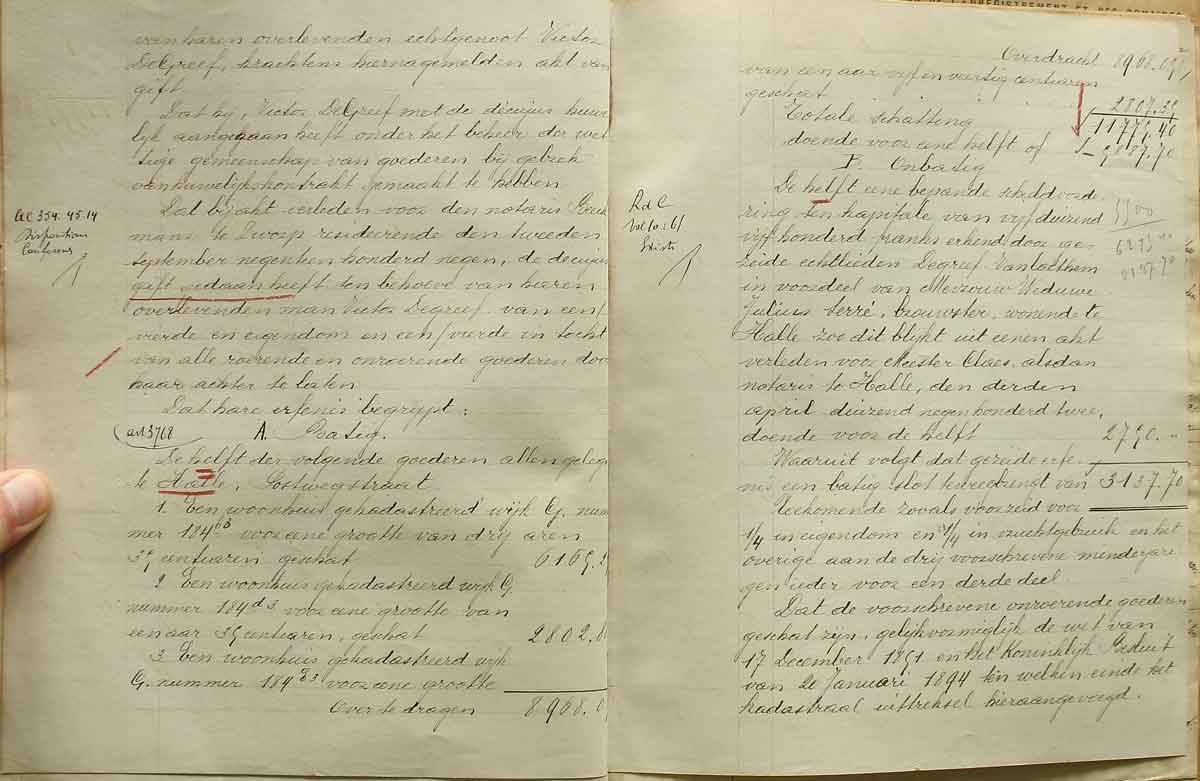 van haren overlevenden echtgenoot Victor
DeGreef, krachtens hiernagemelden akt van
gift.
Dat hij, Victor DeGreef met de décujus huwe
lijk aangegaan heeft onder het beheer der wet
tige gemeenschap van goederen bij gebrek
van huwelijkskontrakt gemaakt te hebben
Dat bij akt verleden voor den notaris
mans te Dworp resideerende den tweeden
september negentien honderd negen, de décujus
gift gedaan heeft ten behoeve van haren
overlevenden man Victor Degreef van een/
vierde en eigendom en een/vierde in tocht
van alle roerende en onroerende goederen door
haar achter te laten
Dat hare erfenis begrijpt :
art 3768
A. Batig.
De helft der volgende goederen allen geleg
te Halle, Oostwegstraat
1. Een woonhuis gekadastreerd wijk G. num
mer 184 voor eene grootte van drij aren
centiaren geschat 6165.2
2 Een woonhuis gekadastreerd wijk G
nummer 184 d3 voor eene grootte van
een aar 35 centiaren, geschat 2802.
3 Een woonhuis gekadastreerd wijk
G. nummer 184 voor eene grootte
Over te dragen 8968.0
Overdracht 8968.05
van een aar vijf en veertig centiaren
geschat 2807.35
Totale schatting 11775.40
doende voor eene helft of 5887.70
B. Onbatig
De helft eene bepaande schuldvorde
ring ten kapitale van vijf duizend
vijf honderd franks erkend door ge
zeide echtlieden Degreef-Vanlaethem
in voordeel van Mevrouw Weduwe
Julius Serré, brouwster, wonende te
Halle zoo dit blijkt uit eenen akt
verleden voor Meester Claes, alsdan
notaris te Halle, den derden
april duizend negenhonderd twee,
doende voor de helft 2750. "
Waaruit volgt dat gezeide erfe
nis een batig slot teweebrengt van 3137.70
Toekomende zooals voorzeid voor
1/4 in eigendom en 1/4 in vruchtgebruik en het
overige aan de drij voorschrevene minderjari
gen ieder voor een derde deel.
Dat de voorschrevene onroerende goederen
geschat zijn, gelijkvormiglijk de wet van
17 December 1851 en het Koninklijk Besluit
van 20 Januari 1894 ten welken einde het
kadastraal uittreksel hieraangevoegd.